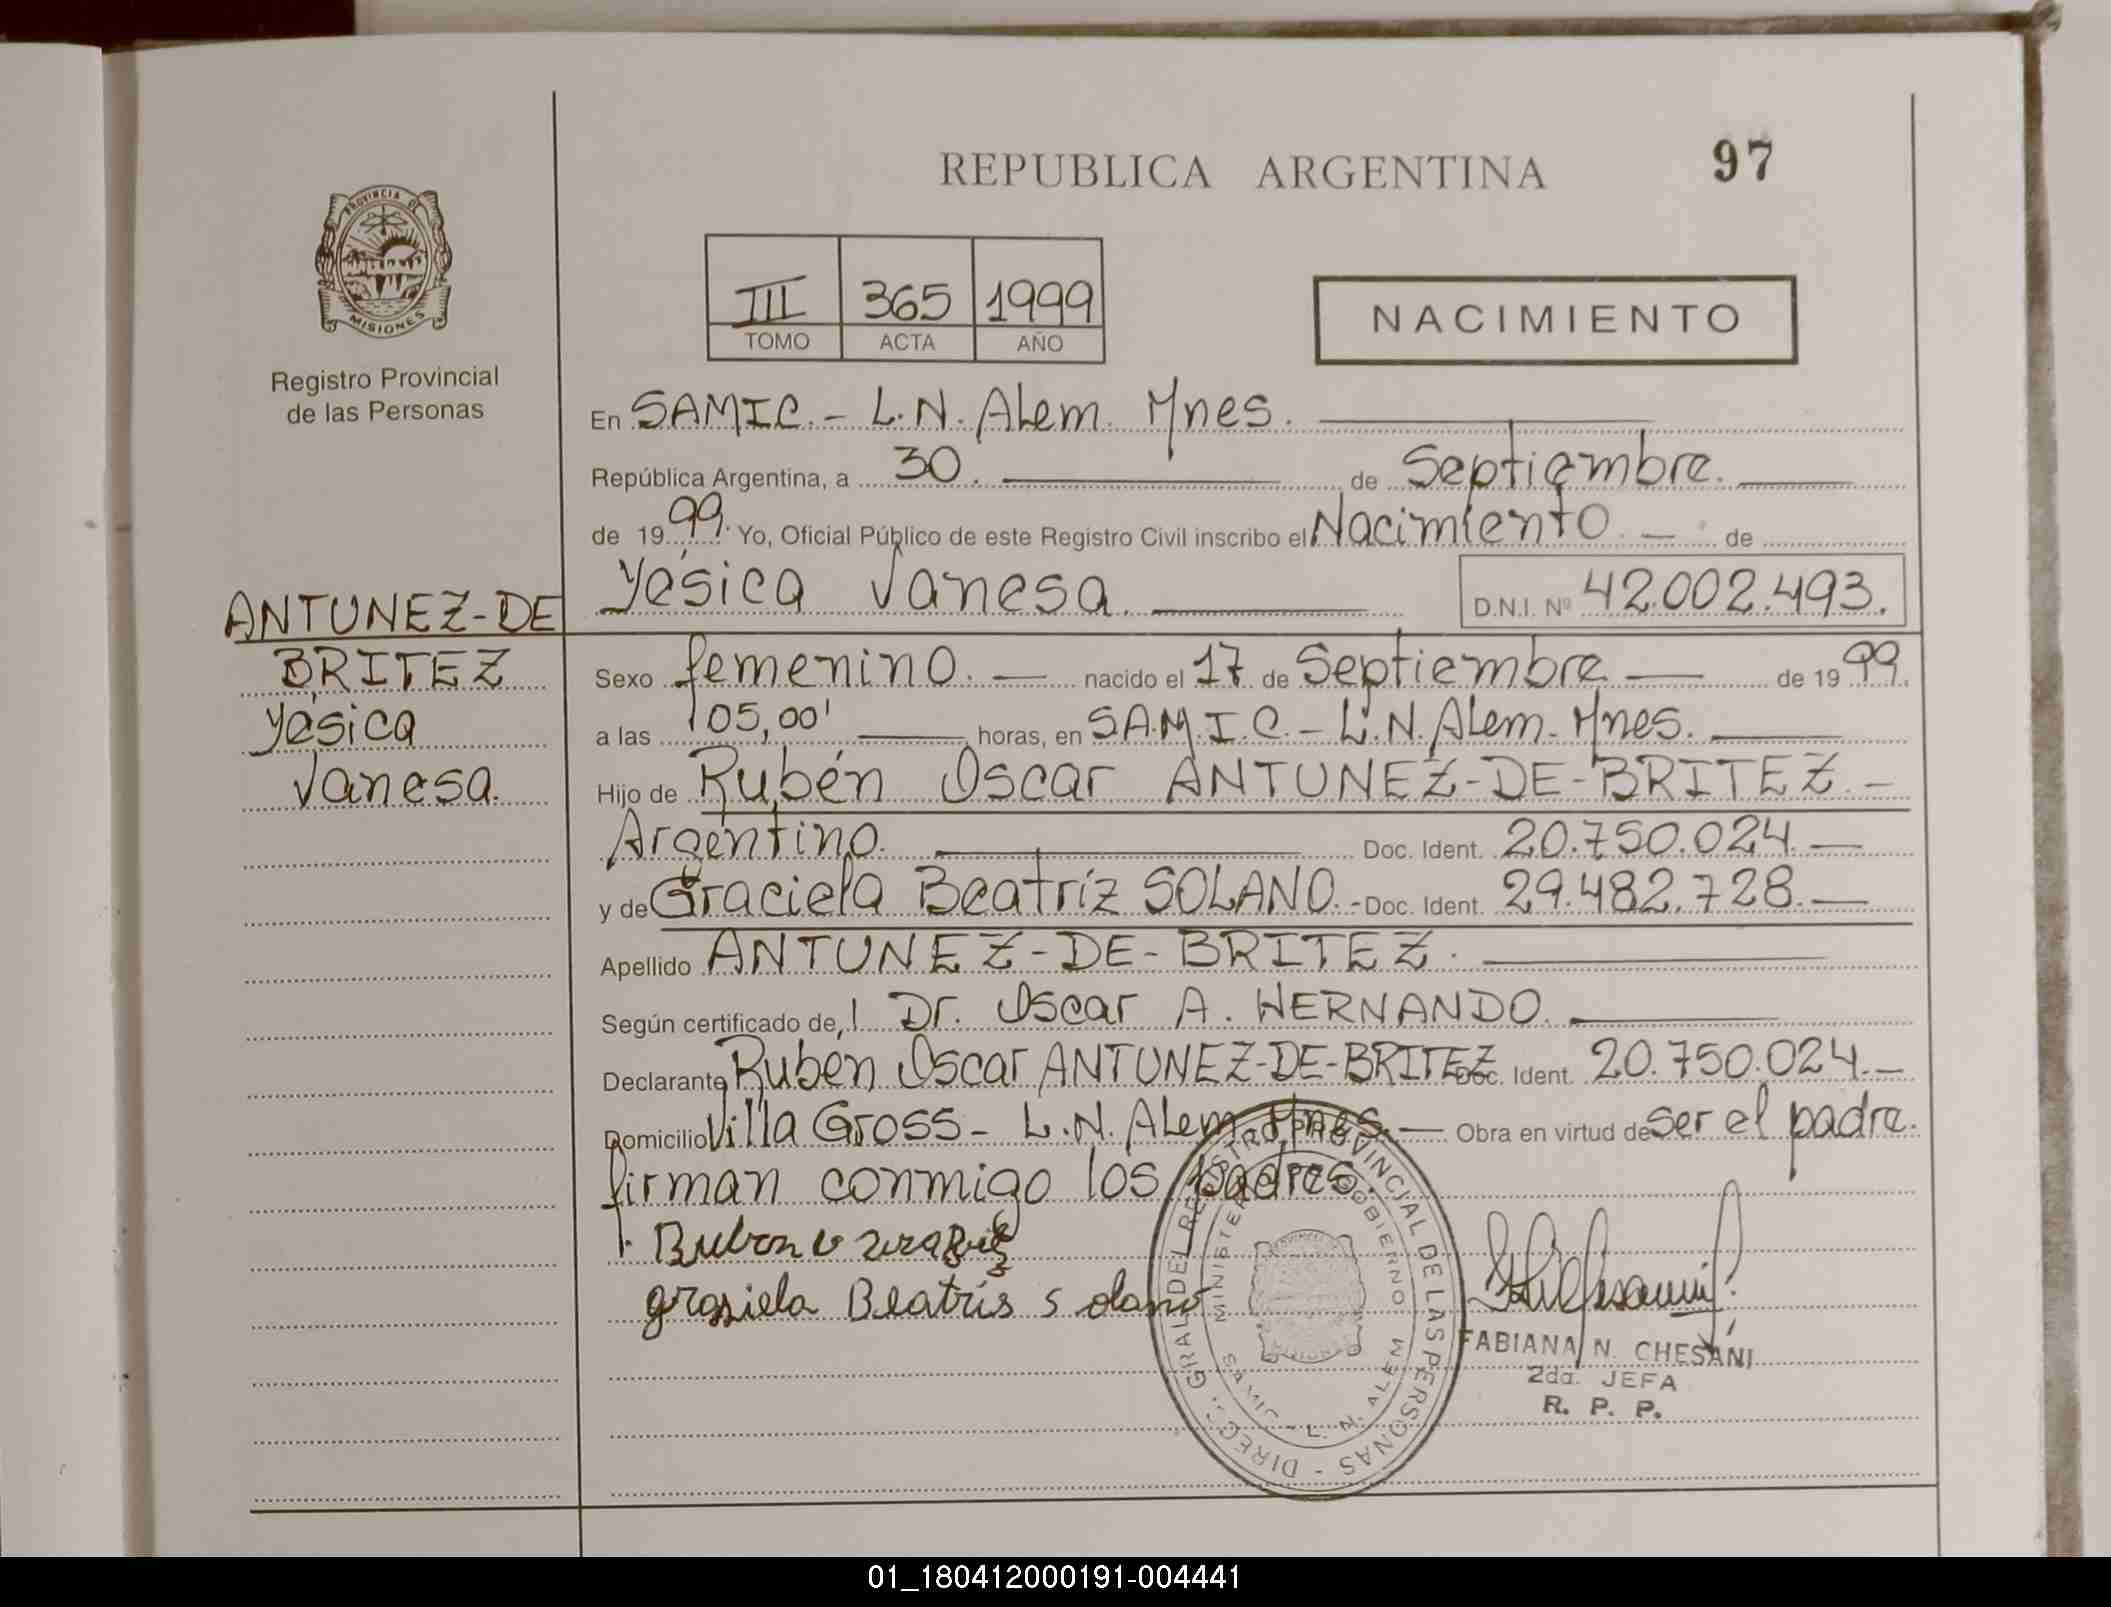 REPUBLICA ARGENTINA
97
PROVINCIA DE
MISIONES
Registro Provincial
de las Personas
III 365 1999
TOMO ACTA AÑO
NACIMIENTO
En SAMIC.- L.N. Alem. Mnes.
República Argentina, a 30. de Septiembre.
de 1999. Yo, Oficial Público de este Registro Civil inscribo el Nacimiento. de
Yésica Vanesa. D.N.I. Nº 42.002.493.
ANTUNEZ-DE
BRITEZ
Yésica
Vanesa.
Sexo femenino. nacido el 17 de Septiembre de 1999.
a las 05,00' horas, en S.A.M.I.C.- L.N. Alem. Mnes.
Hijo de Rubén Oscar ANTUNEZ-DE-BRITEZ.-
Argentino. Doc. Ident. 20.750.024.
y de Graciela Beatríz SOLANO.- Doc. Ident. 29.482.728.
Apellido ANTUNEZ-DE-BRITEZ.
Según certificado de Dr. Oscar A. HERNANDO.
Declarante Rubén Oscar ANTUNEZ-DE-BRITEZ Doc. Ident. 20.750.024.
Domicilio Villa Gross- L.N. Alem Mnes. Obra en virtud de ser el padre.
firman conmigo los padres.
graziela Beatris solano
DIRECC. GRAL. DEL REGISTRO PROVINCIAL DE LAS PERSONAS
MINISTERIO DE GOBIERNO
SAMIC - L. N. ALEM
FABIANA N. CHESANI
2da. JEFA
R. P. P.
01_180412000191-004441